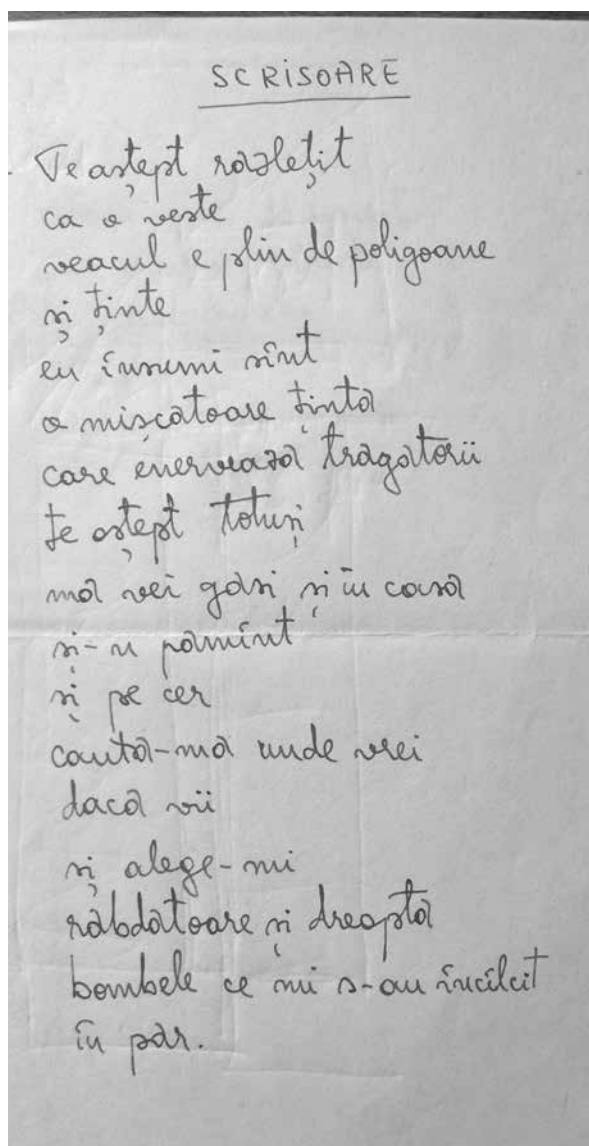 SCRISOARE
Te aștept răzlețit
ca o veste
veacul e plin de poligoane
și ținte
eu însumi sînt
o mișcătoare țintă
care enervează trăgătorii
te aștept totuși
mă vei găsi și în casă
și-n pămînt
și pe cer
caută-mă unde vrei
dacă vii
și alege-mi
răbdătoare și dreaptă
bombele ce mi s-au încîlcit
în păr.